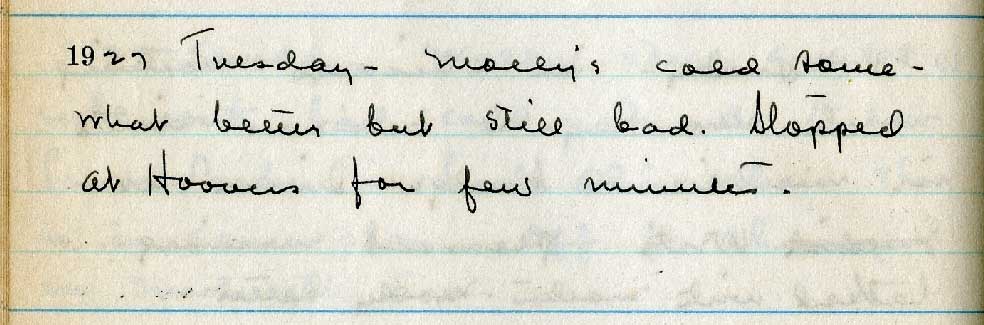 1927 Tuesday - Molly's cold some-
what better but still bad. Stopped
at Hoovers for few minutes.